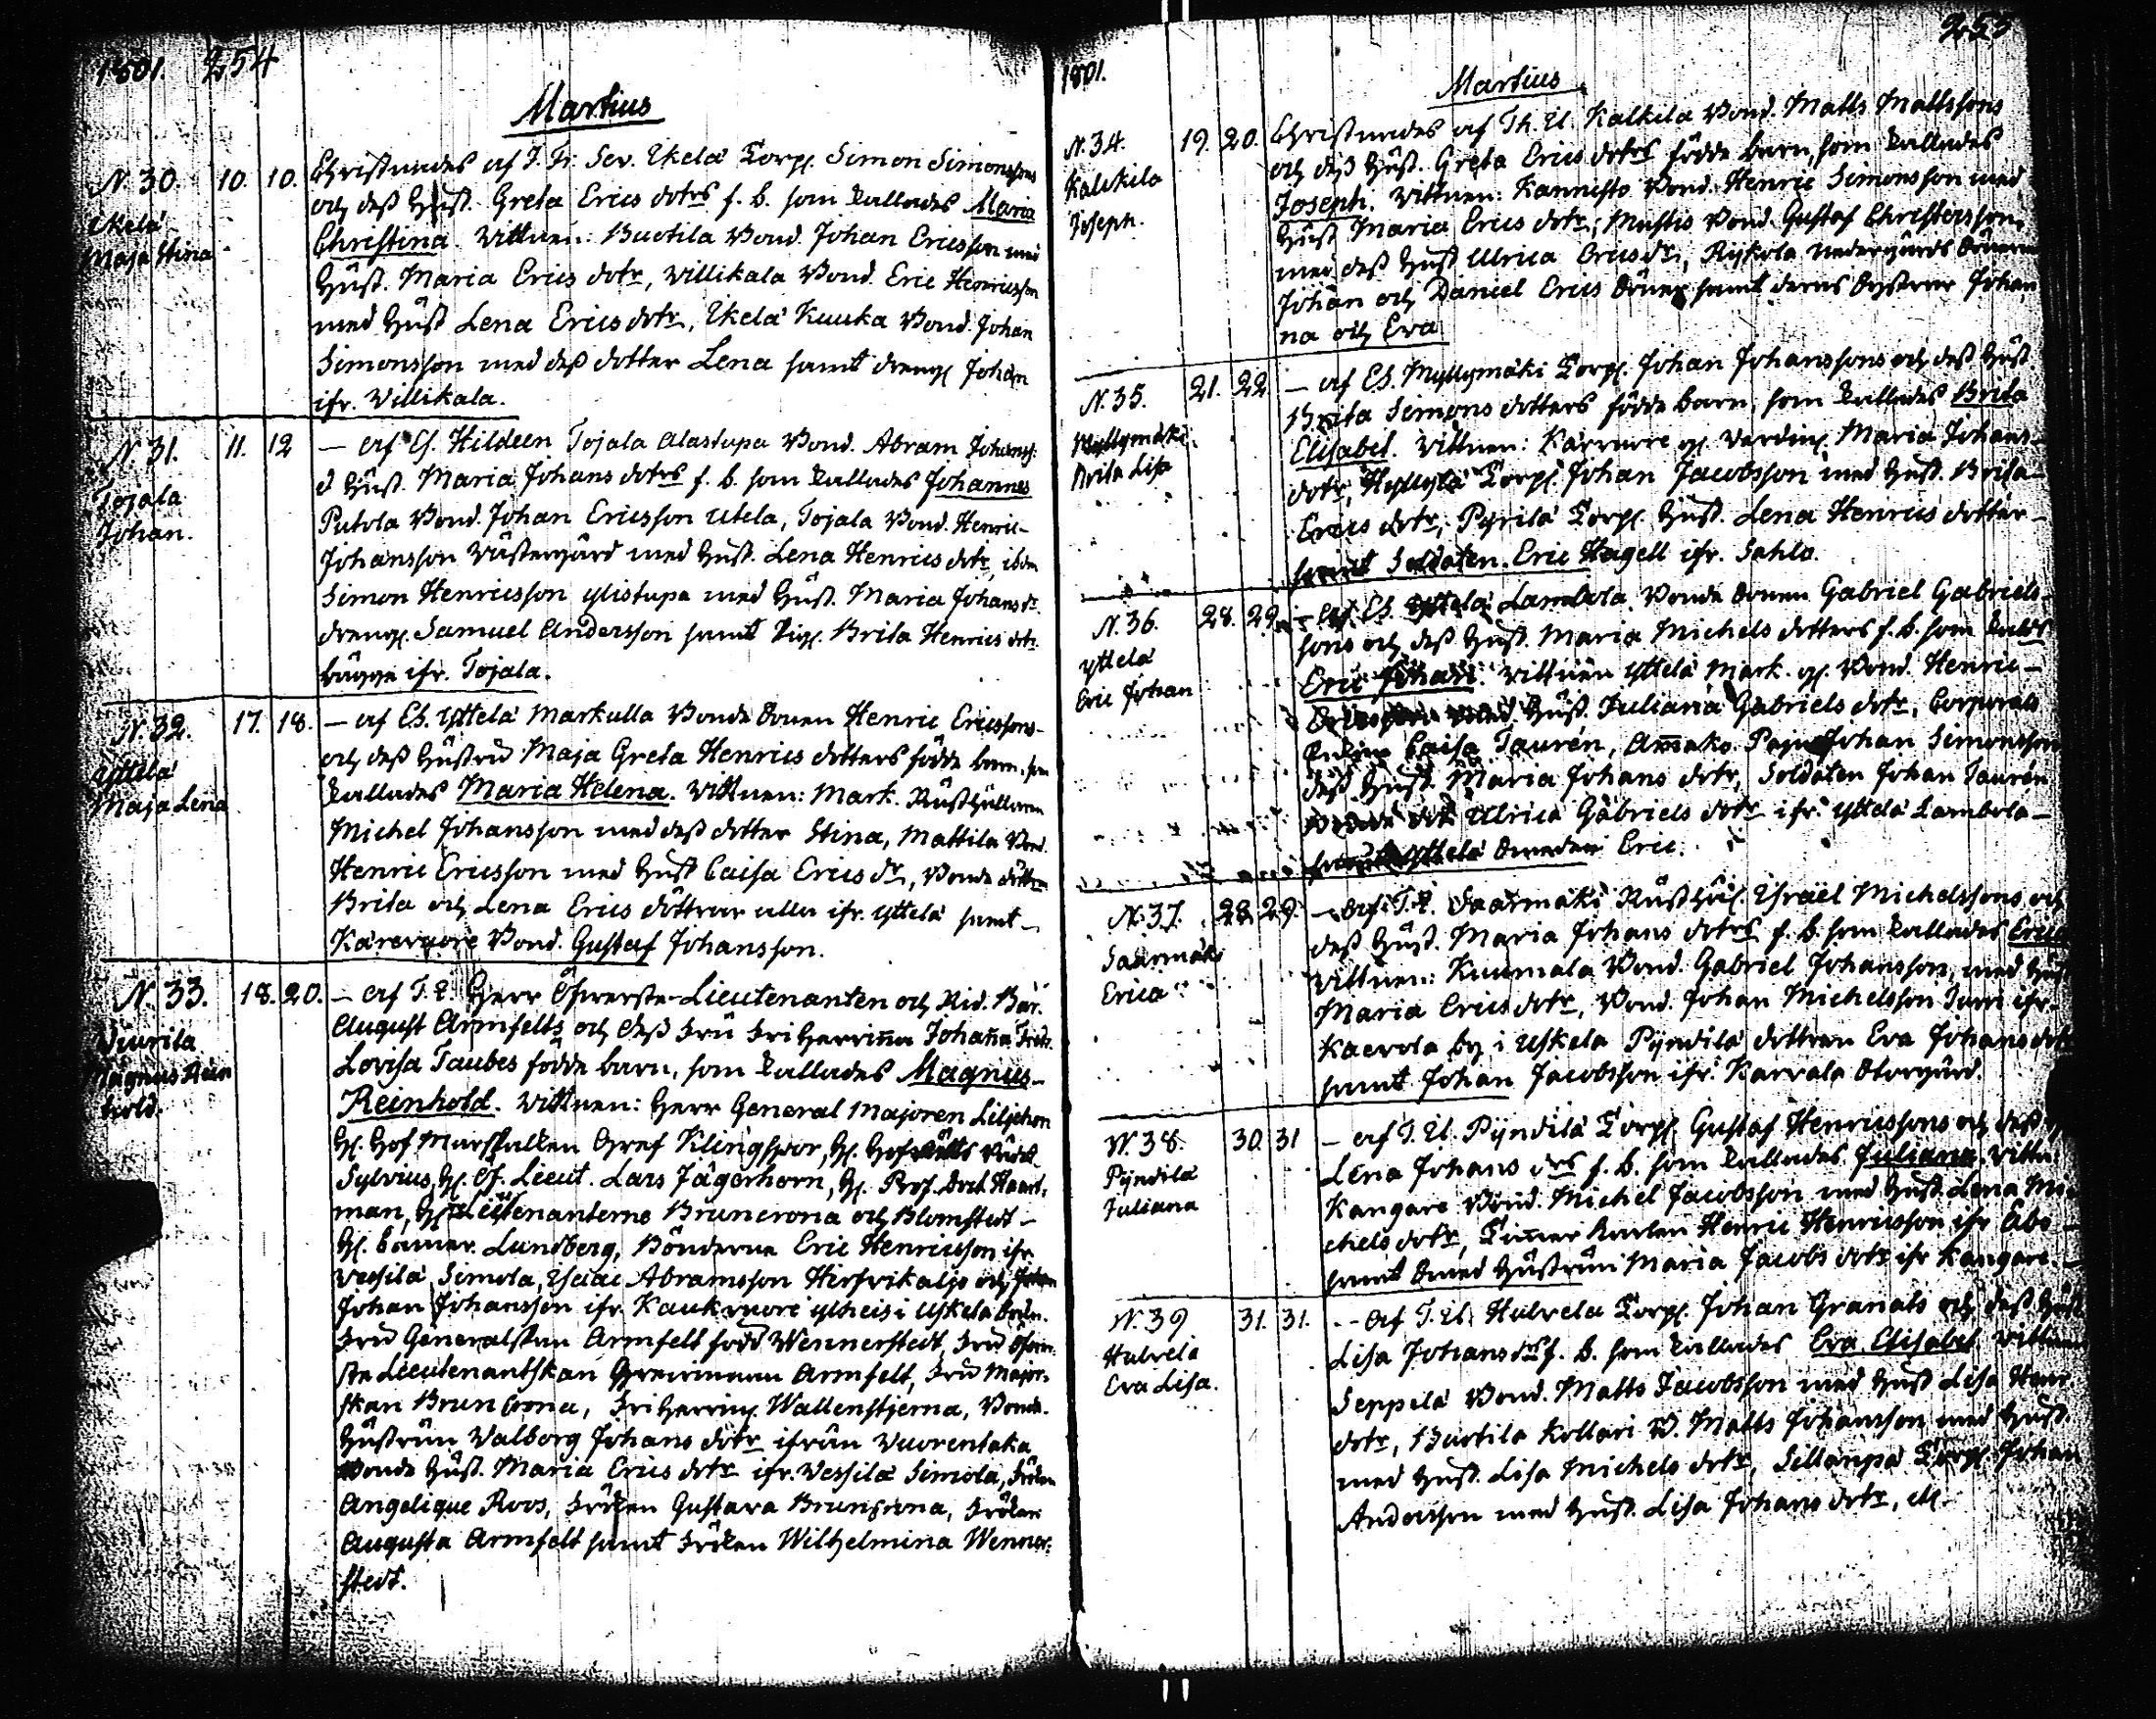 1801. 254
Martius
N. 30. 10. 10. Christnades af J. Fr. Sev. Ukelä Torp. Simon Simonssons
Ukelä och dess Hust. Greta Erics dotrs f. b. som kallades Maria
Maja Stina Christina. Vittnen: Buotila Bond. Johan Ericsson med
Hust. Maria Erics dotr, Villikala Bond. Eric Henricsson
med Hust Lena Erics dotr, Ukelä Kuuka Bond. Johan
Simonsson med dess dotter Lena samt dreng Johan
ifr. Villikala.
N. 31. 11. 12 — af Hildeen Tojala alastupa Bond. Abram Johanss:
Tojala Hust. Maria Johans dotrs f. b. som kallades Johannes
Johan. Putola Bond. Johan Ericsson Utela, Tojala Bond. Henric
Johansson Västergård med Hust. Lena Henrics dotr, ibdm
Simon Henricsson ylistupa med Hust. Maria Johans dr.
dreng. Samuel Andersson samt Pig. Brita Henrics dotr.
bägge ifr. Tojala.
N. 32. 17. 18. — af Eh. Yttelä Markulla Bonde Sonen Henric Ericssons
Yttelä och dess Hustru Maja Greta Henrics dotters födde barn, som
Maja Lena kallades Maria Helena. Vittnen: Mark. Rusthållaren
Michel Johansson med dess dotter Stina, Mattila Bond.
Henric Ericsson med Hust Caisa Erics dr, Bonde döttr.
Brita och Lena Erics döttrar alla ifr. Yttelä samt
Kärervore Bond. Gustaf Johansson.
N. 33. 18. 20. — af T. E. Herr Öfwerste-Lieutenanten och Rid. Bar.
Wiurila August Armfelts och dess Fru FriHerrinna Johanna Fredr.
Magnus Rein Lovisa Taubes födde barn, som kallades Magnus
hold. Reinhold. Vittnen: Herr General Majoren Liljehorn
H. Hof Marskalken Gref Klingspor, H. Hofrätts Rådet
Sylvius, H. Öf. Lieut. Lars Jägerhorn, H. Prof. Doct. Haart-
man, H. Lieutenanterne Bruncrona och Blomstedt
H. Lundberg, Bönderne Eric Henricsson ifr
Vessilä Simola, Isaac Abramsson Hirsvikaljo och
Johan Johansson ifr. Kaukvuore ytheis i Uskela
Fru Generalskan Armfelt född Wennerstedt, Fru Öfwer-
ste Lieutenantskan Grefvinnan Armfelt, Fru Major-
skan Bruncrona, FriHerrin. Wallenstjerna, Bonde-
Hustrun Valborg Johans dotr ifrån Vuorentaka
Bonde Hust. Maria Erics dotr ifr. Vessilä Simola, Fröken
Angelique Roos, Fröken Gustava Bruncrona, Fröken
Augusta Armfelt samt Fröken Wilhelmina Wenner-
stedt.
1801. 255
Martius
N. 34. 19. 20. Christnades af Th. U. Kalkila Bond. Matts Mattssons
Kalkila och dess Hust. Greta Erics dotrs födde barn, som kallades
Joseph. Joseph. Vittnen: Kannisto Bond. Henric Simonsson med
Hust Maria Erics dotr, Mustio Bond. Gustaf Christersson
med dess Hust Ulrica Erics dr, Rykola Nedergårds Söner
Johan och Daniel Erics Söner samt deras Systrar Johan
na och Eva
N. 35. 21. 22 — af Eh. Myllymäki Torp. Johan Johanssons och dess Hust
Myllymäki Brita Simons dotters födde barn, som kallades Brita
Brita Lisa Elisabet. Vittnen: Kärvuore Maria Johans
dotr, Hyllylä Torp. Johan Jacobsson med Hust. Brita
Erics dotr, Pyrilä Torp. Hust. Lena Henrics dotter
samt Soldaten Eric Hagell ifr. Sahlo.
N. 36. 28. 29. — af Eh. Yttelä Lambola Bonde Sonen Gabriel Gabriels
Yttelä sons och dess Hust. Maria Michels dotters f. b. som kalds
Eric Johan Eric Johan. Vittnen Yttelä Mark. Bond. Henric
Hust. Juliana Gabriels dotr, Corporals
Caisa Taurén, Johan Simonsson
dess Hust. Maria Johans dotr, Soldaten Johan Taurén
Ulrica Gabriels dotr ifr. Yttelä Lambola
samt Yttelä Eric.
N. 37. 28. 29. — af T. E. Saarmäki Rusthål. Israel Michelssons och
Saarmäki dess Hust. Maria Johans dotrs f. b. som kallades Erica
Erica Vittnen: Kuumala Bond. Gabriel Johansson, med Hust
Maria Erics dotr, Bond. Johan Michelsson ifr.
Kaerola by i Uskela Pyndilä dottren Eva Johans dotr
samt Johan Jacobsson ifr. Karvala Storgård.
N. 38. 30. 31 — af T. U. Pyndilä Torp. Gustaf Henricssons och dess
Pyndilä Lena Johans drs f. b. som kallades Juliana. Vittn.
Juliana Kangare Bond. Michel Jacobsson med Hust. Lena Mi-
chels dotr, Timmer Karlen Henric Henricsson ifr Åbo
samt Hustrun Maria Jacobs dotr ifr Kangare.
N. 39 31. 31. — af T. U. Hulvela Torp. Johan Granats och dess Hust
Hulvela Lisa Johans drs f. b. som kallades Eva Elisabet Vittnen
Eva Lisa. Seppilä Bond. Matts Jacobsson med Hust Lisa Henr.
dotr, Buotila Kollari B. Matts Johansson med Hust.
med Hust. Lisa Michels dotr, Sillanpä Torp. Johan
Andersson med Hust. Lisa Johans dotr, etc.